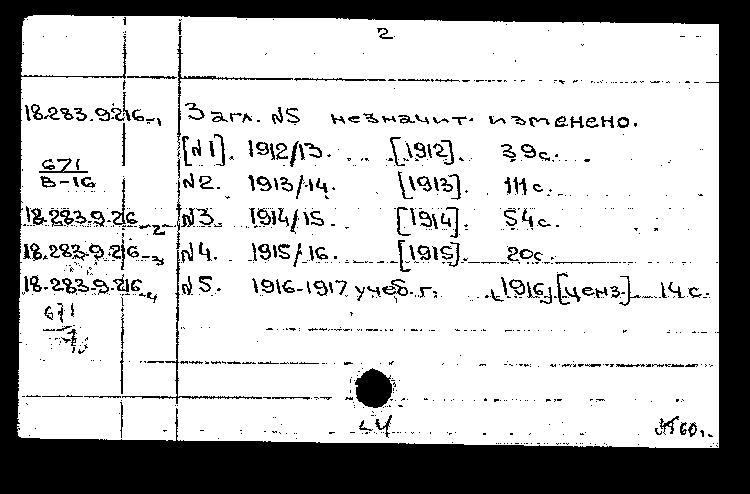 2
18.283.9.216-1 Загл. №5 незначит. изменено.
[№1]. 1912/13. [1912]. 39с.
671
В-16 №2. 1913/14. [1913]. 111с.
18.283.9.26-2 №3. 1914/15. [1914]. 54с.
18.283.9.216-3 №4. 1915/16. [1915]. 20с.
18.283.9.216-4 №5. 1916-1917 учеб. г. [1916] [ценз.] 14с.
671
60г.